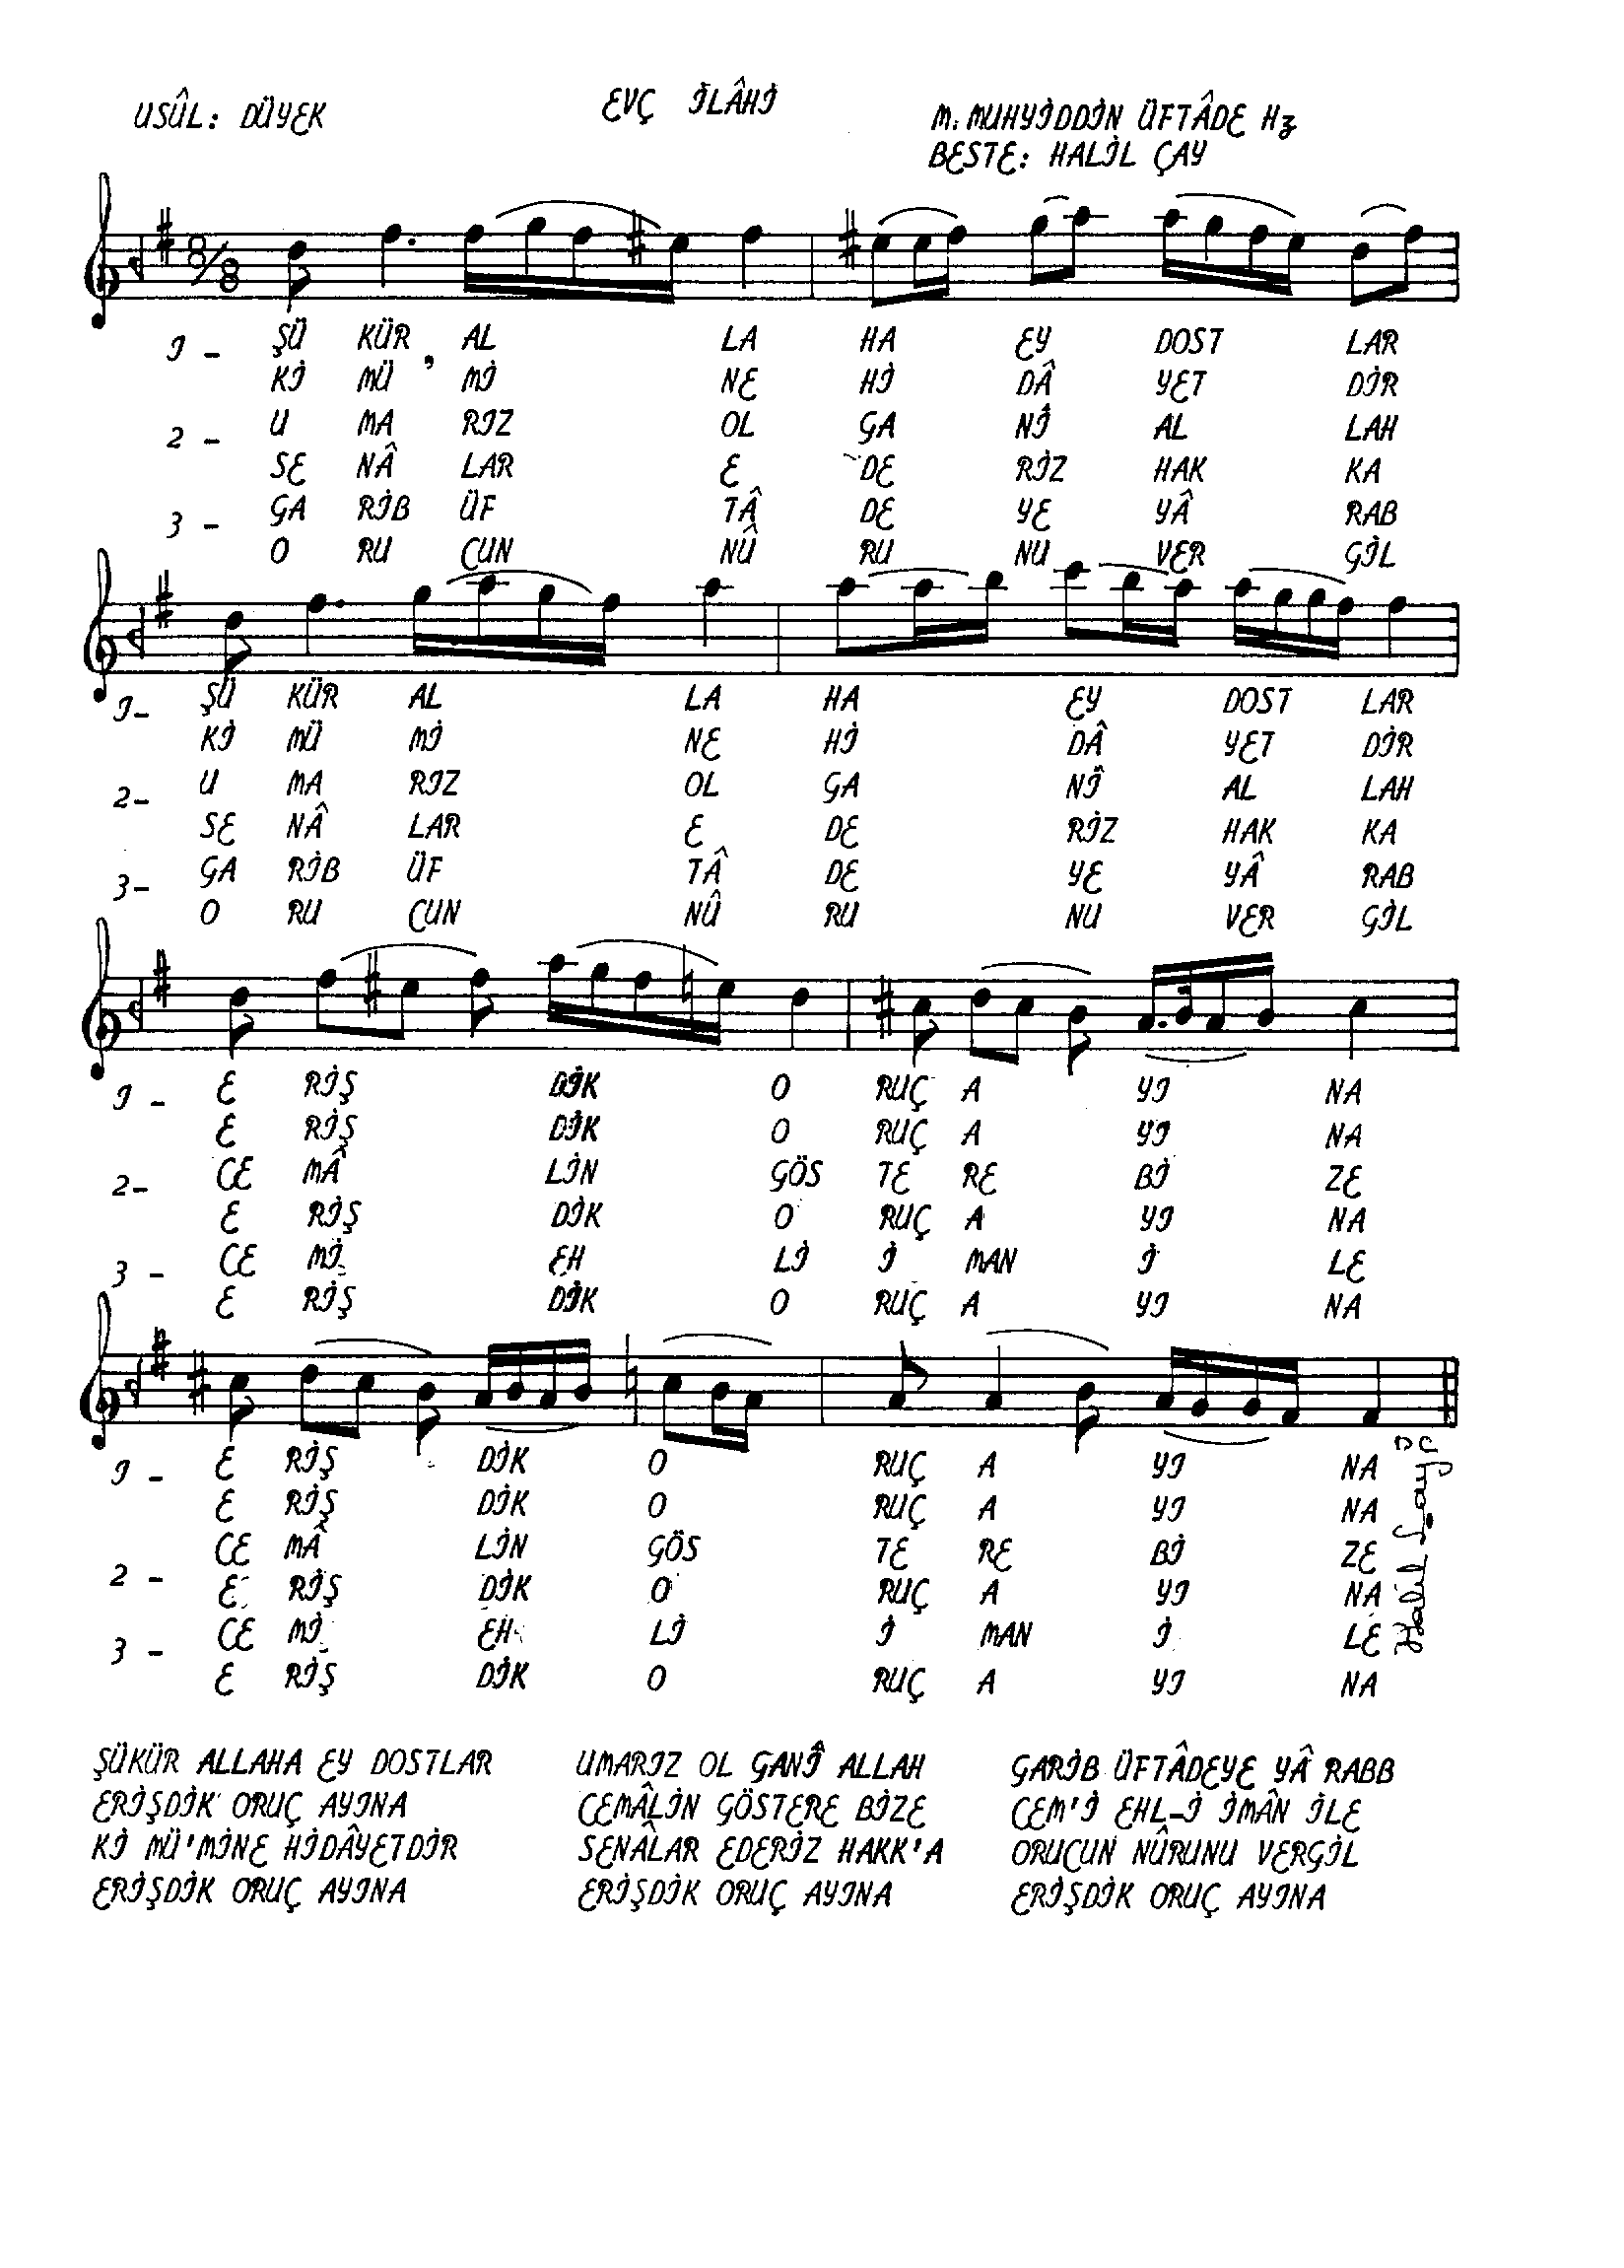 USÛL: DÜYEK
EVÇ İLÂHİ
M. MUHYİDDİN ÜFTÂDE Hz
BESTE: HALİL ÇAY
8/8
1 - ŞÜ KÜR AL LA HA EY DOST LAR
Kİ MÜ ' Mİ NE Hİ DÂ YET DİR
2 - U MA RIZ OL GA NÎ AL LAH
SE NÂ LAR E DE RİZ HAK KA
3 - GA RİB ÜF TÂ DE YE YÂ RAB
O RU CUN NÛ RU NU VER GİL
1- ŞÜ KÜR AL LA HA EY DOST LAR
Kİ MÜ Mİ NE Hİ DÂ YET DİR
2- U MA RIZ OL GA NÎ AL LAH
SE NÂ LAR E DE RİZ HAK KA
3- GA RİB ÜF TÂ DE YE YÂ RAB
O RU CUN NÛ RU NU VER GİL
1 - E RİŞ DİK O RUÇ A YI NA
E RİŞ DİK O RUÇ A YI NA
2- CE MÂ LİN GÖS TE RE Bİ ZE
E RİŞ DİK O RUÇ A YI NA
3 - CE Mİ EH Lİ İ MAN İ LE
E RİŞ DİK O RUÇ A YI NA
1 - E RİŞ DİK O RUÇ A YI NA
E RİŞ DİK O RUÇ A YI NA
CE MÂ LİN GÖS TE RE Bİ ZE
2 - E RİŞ DİK O RUÇ A YI NA
3 - CE Mİ EH Lİ İ MAN İ LE
E RİŞ DİK O RUÇ A YI NA
Halil Çay
ŞÜKÜR ALLAHA EY DOSTLAR
ERİŞDİK ORUÇ AYINA
Kİ MÜ'MİNE HİDÂYETDİR
ERİŞDİK ORUÇ AYINA
UMARIZ OL GANÎ ALLAH
CEMÂLİN GÖSTERE BİZE
SENÂLAR EDERİZ HAKK'A
ERİŞDİK ORUÇ AYINA
GARİB ÜFTÂDEYE YÂ RABB
CEM'İ EHL-İ İMÂN İLE
ORUCUN NÛRUNU VERGİL
ERİŞDİK ORUÇ AYINA